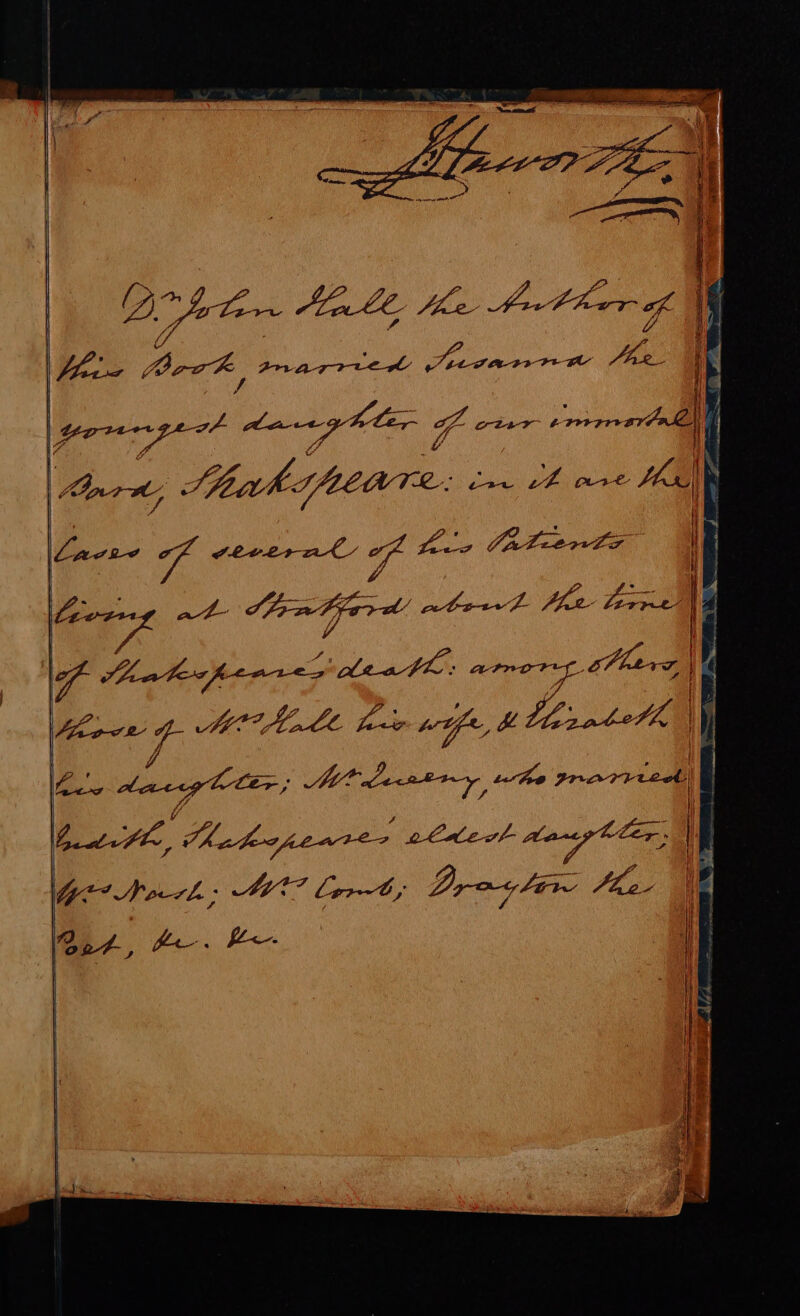 JHaworth.
Dr. John Hall, the Author of
this Book, married Susanna the
youngest daughter of our immortal
Bard, Shakspeare: in it are the
Cases of several of his Patients
living at Stratford about the time
of Shakespeare's death: among others,
those of Mrs. Hall his wife, & Elizabeth
his daughter; Mr. Queeny, who married
Judith, Shakespeares eldest daughter;
Mrs Nash; Mrs. Comb; Drayton the
Poet, &c. &c.